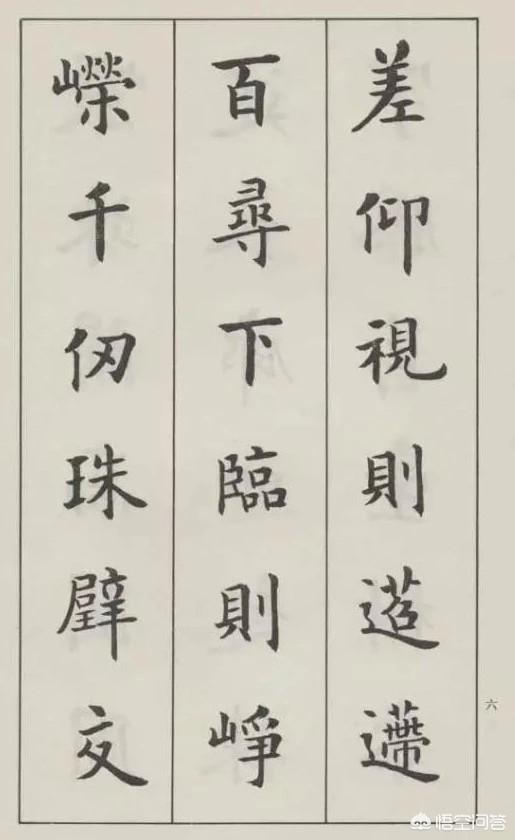 差仰視則迢遰
百尋下臨則崢
嶸千仞珠璧交
六
悟空问答